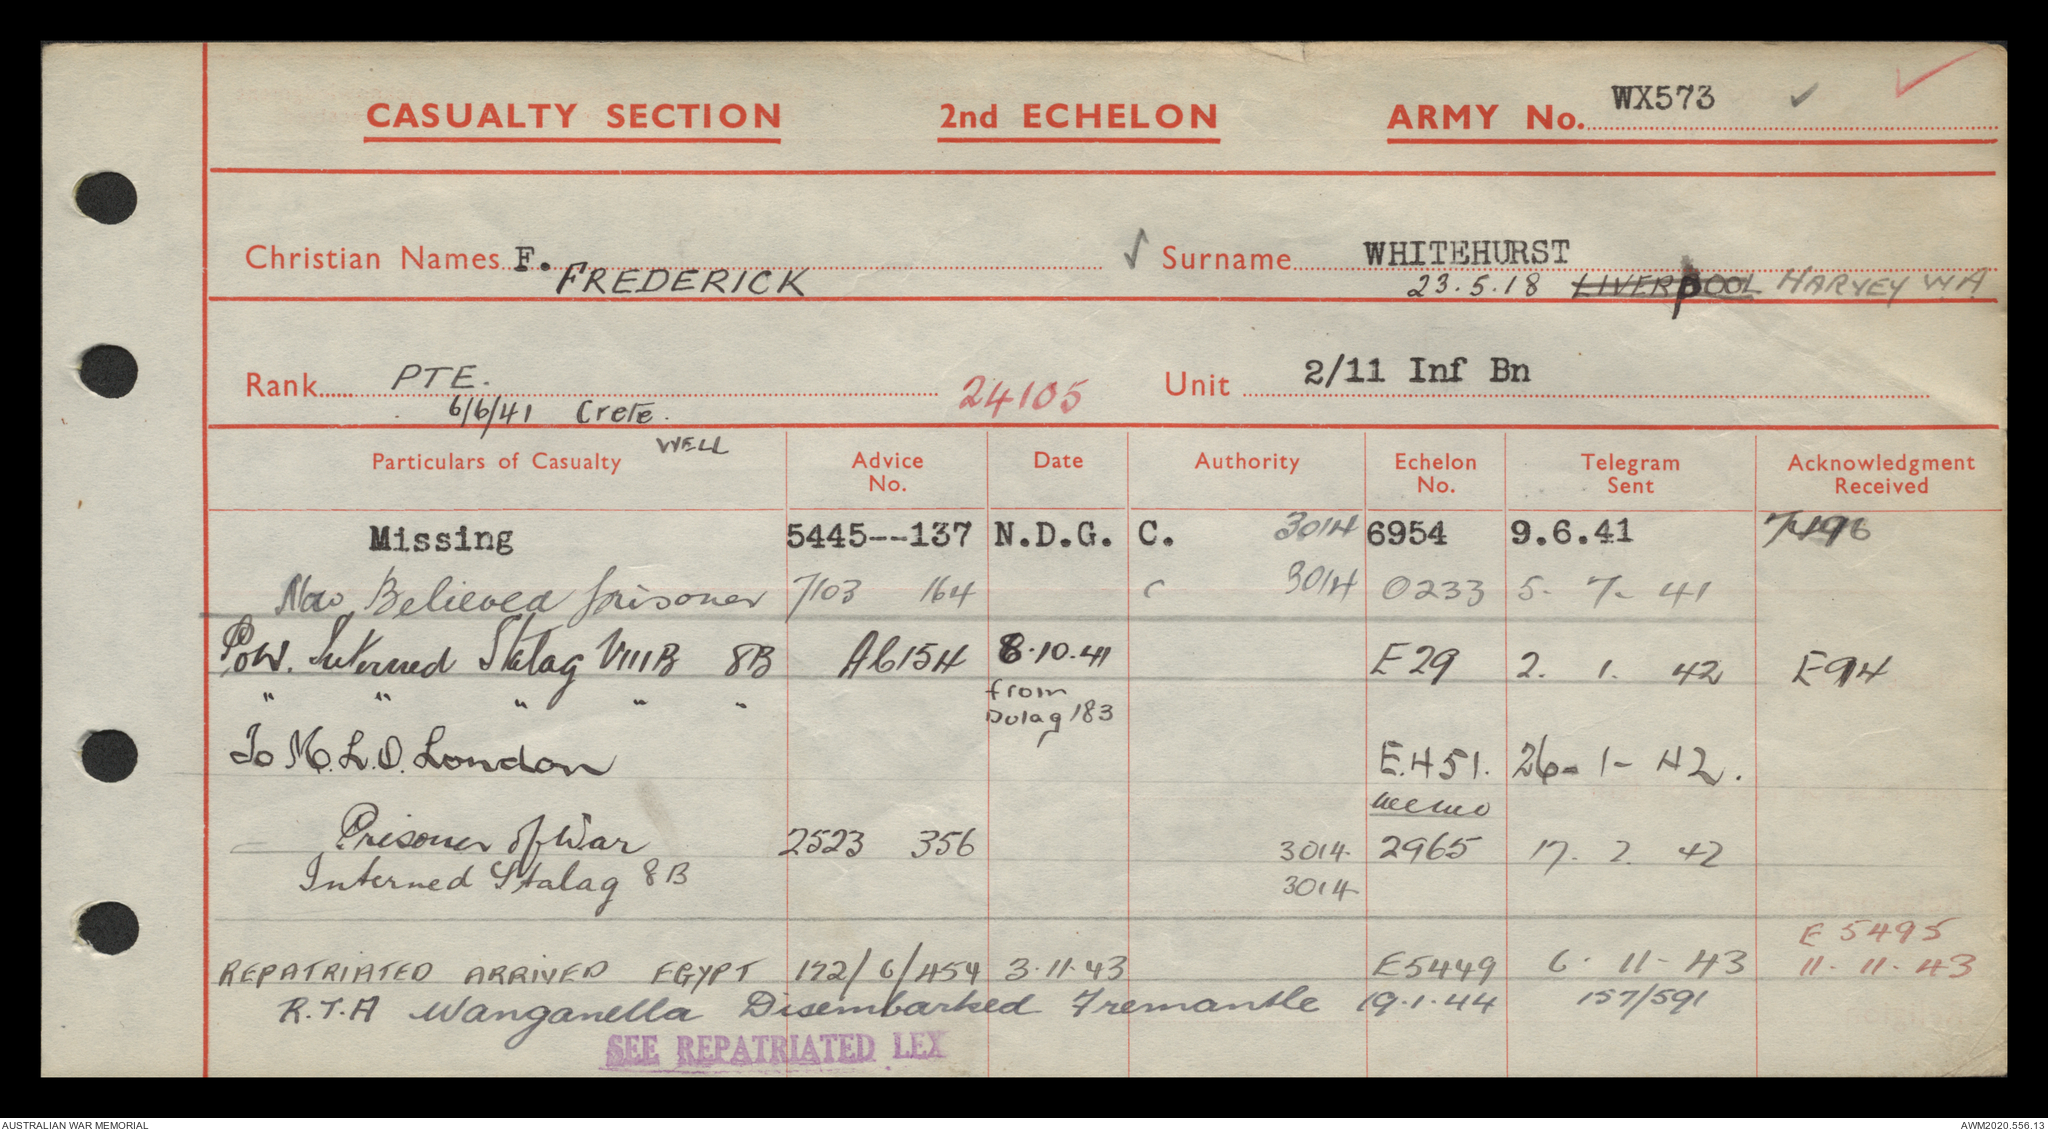 CASUALTY SECTION 2nd ECHELON ARMY No. WX573
Christian Names F. Surname WHITEHURST
FREDERICK 23.5.18 LIVERPOOL HARVEY W A
Rank PTE. 24105 Unit 2/11 Inf Bn
6/6/41 Crete.
WELL
Particulars of Casualty Advice No. Date Authority Echelon No. Telegram Sent Acknowledgment Received
Missing 5445--137 N.D.G. C. 3014 6954 9.6.41
Now Believed prisoner 7103 164 C 3014 0233 5. 7. 41
PoW. Interned Stalag VIIIB 8B A615H 8.10.41 E29 2. 1. 42 E914
" " " " " from
Dulag 183
To M.L.O. London E.451. 26-1-42.
memo
Prisoner of War 2523 356 3014 2965 17. 2. 42
Interned Stalag 8B 3014
E 5495
REPATRIATED ARRIVED EGYPT 172/6/454 3.11.43 E5449 6. 11. 43 11. 11. 43
R.T.A Wanganella Disembarked Fremantle 19.1.44 157/591
SEE REPATRIATED LEX
AUSTRALIAN WAR MEMORIAL AWM2020.556.13